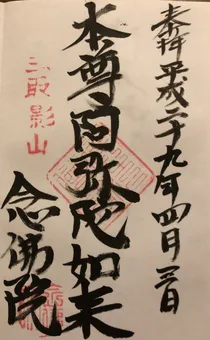 奉拝 平成二十九年四月三日
本尊阿弥陀如来
三取影山
念佛院